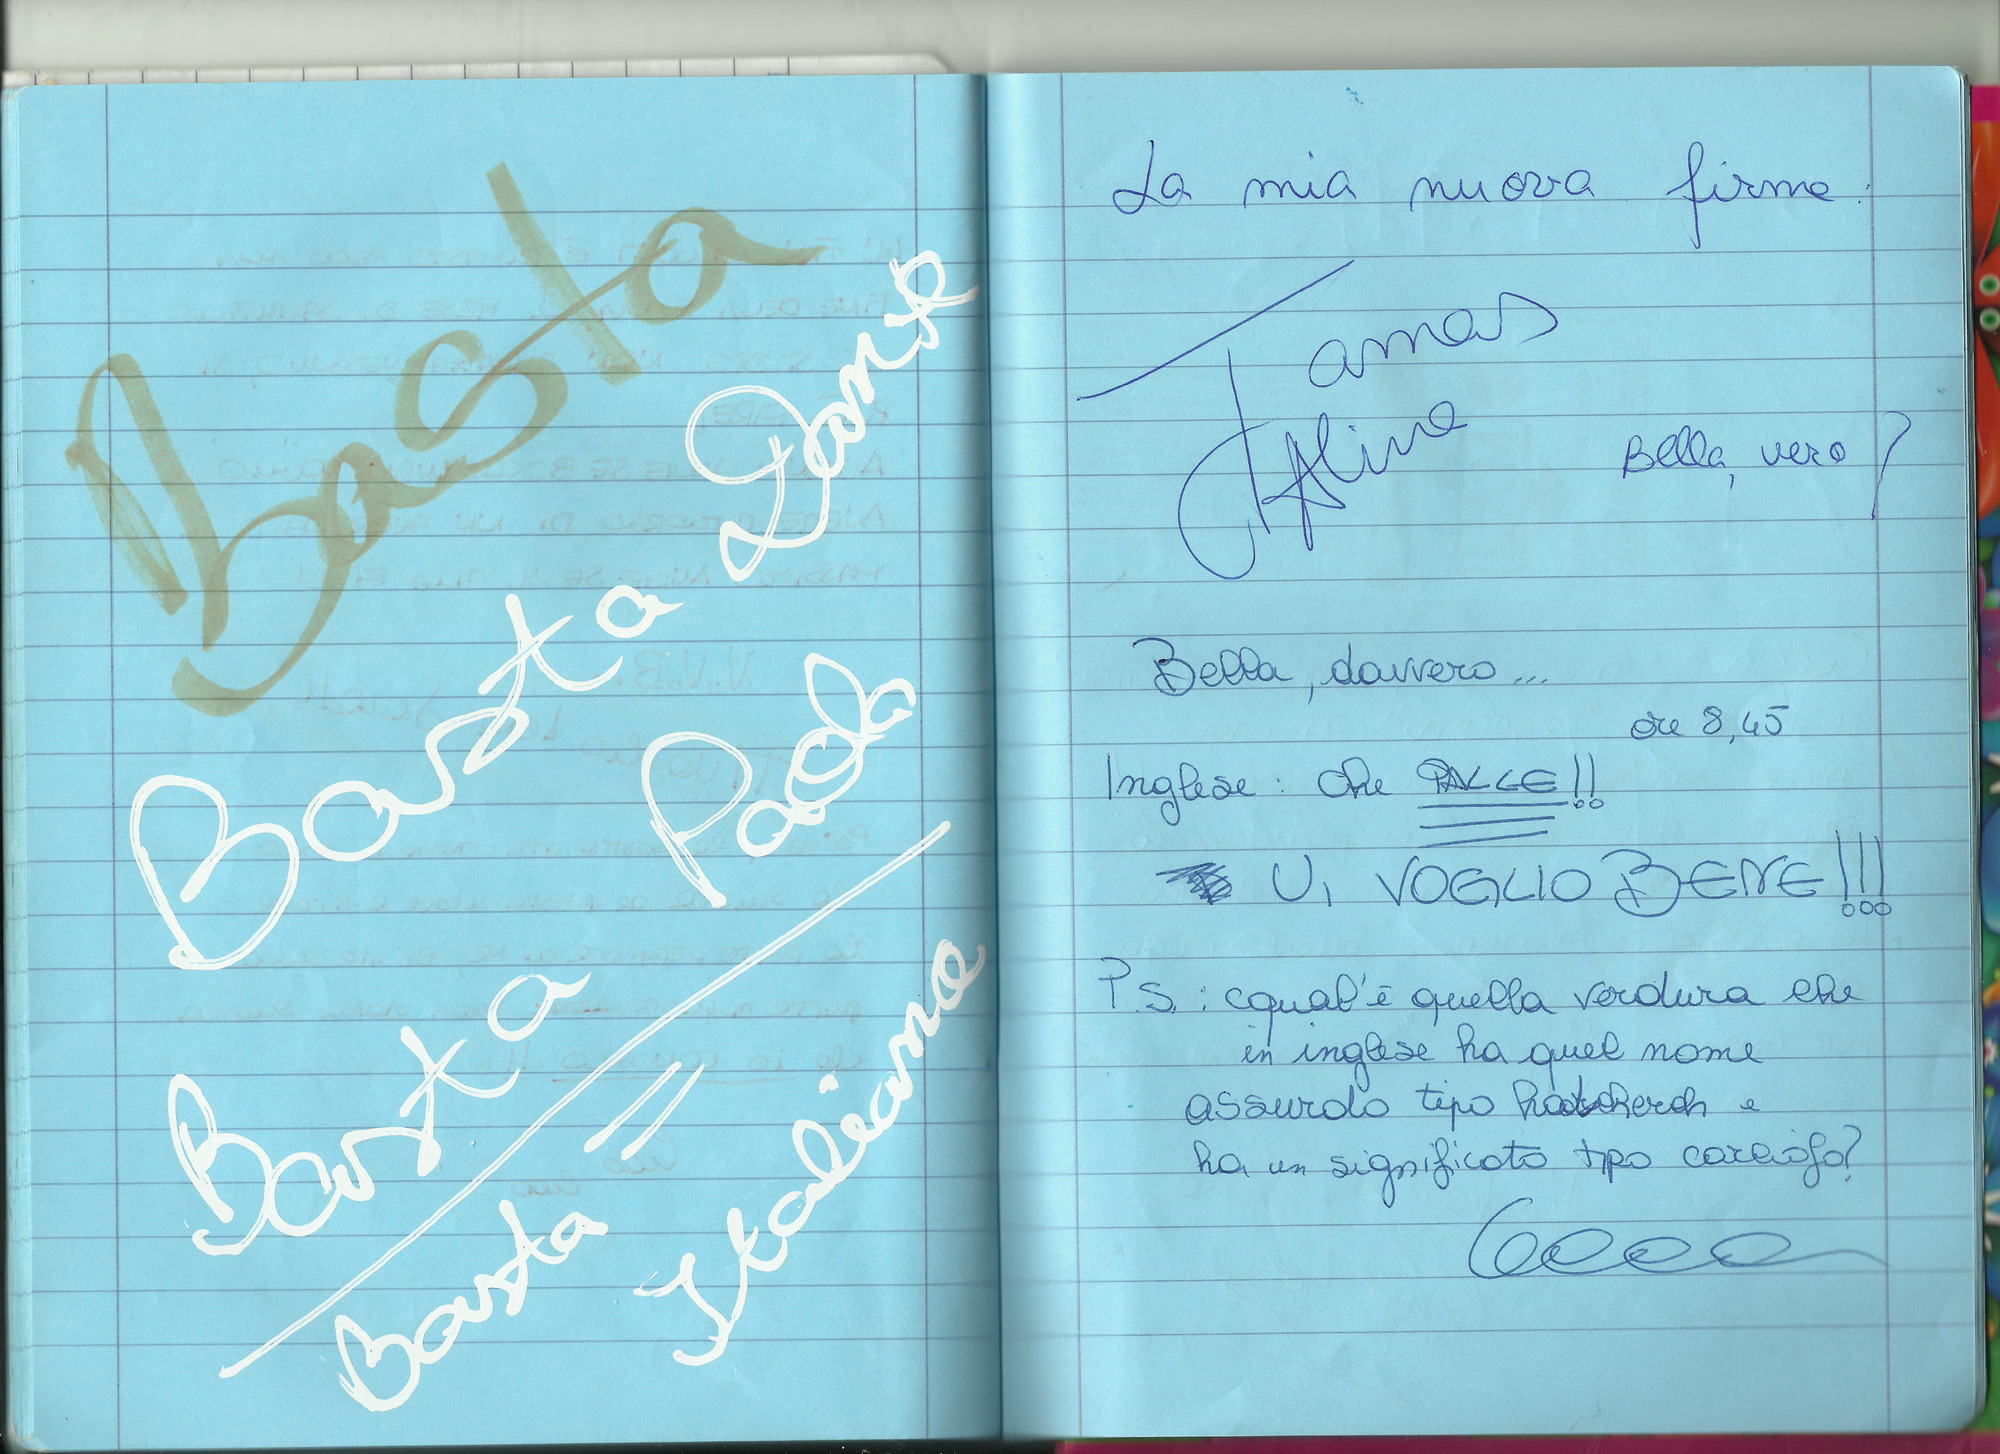 Basta
Basta Dante
Basta Paola
=
Basta Italiano
La mia nuova firma:
Tamas
Aline
Bella, vero?
Bella, davvero...
ore 8,45
Inglese: che PALLE!!
VI VOGLIO BENE!!!
P.S.: qual'è quella verdura che
in inglese ha quel nome
assurdo tipo e
ha un significato tipo carciofo?